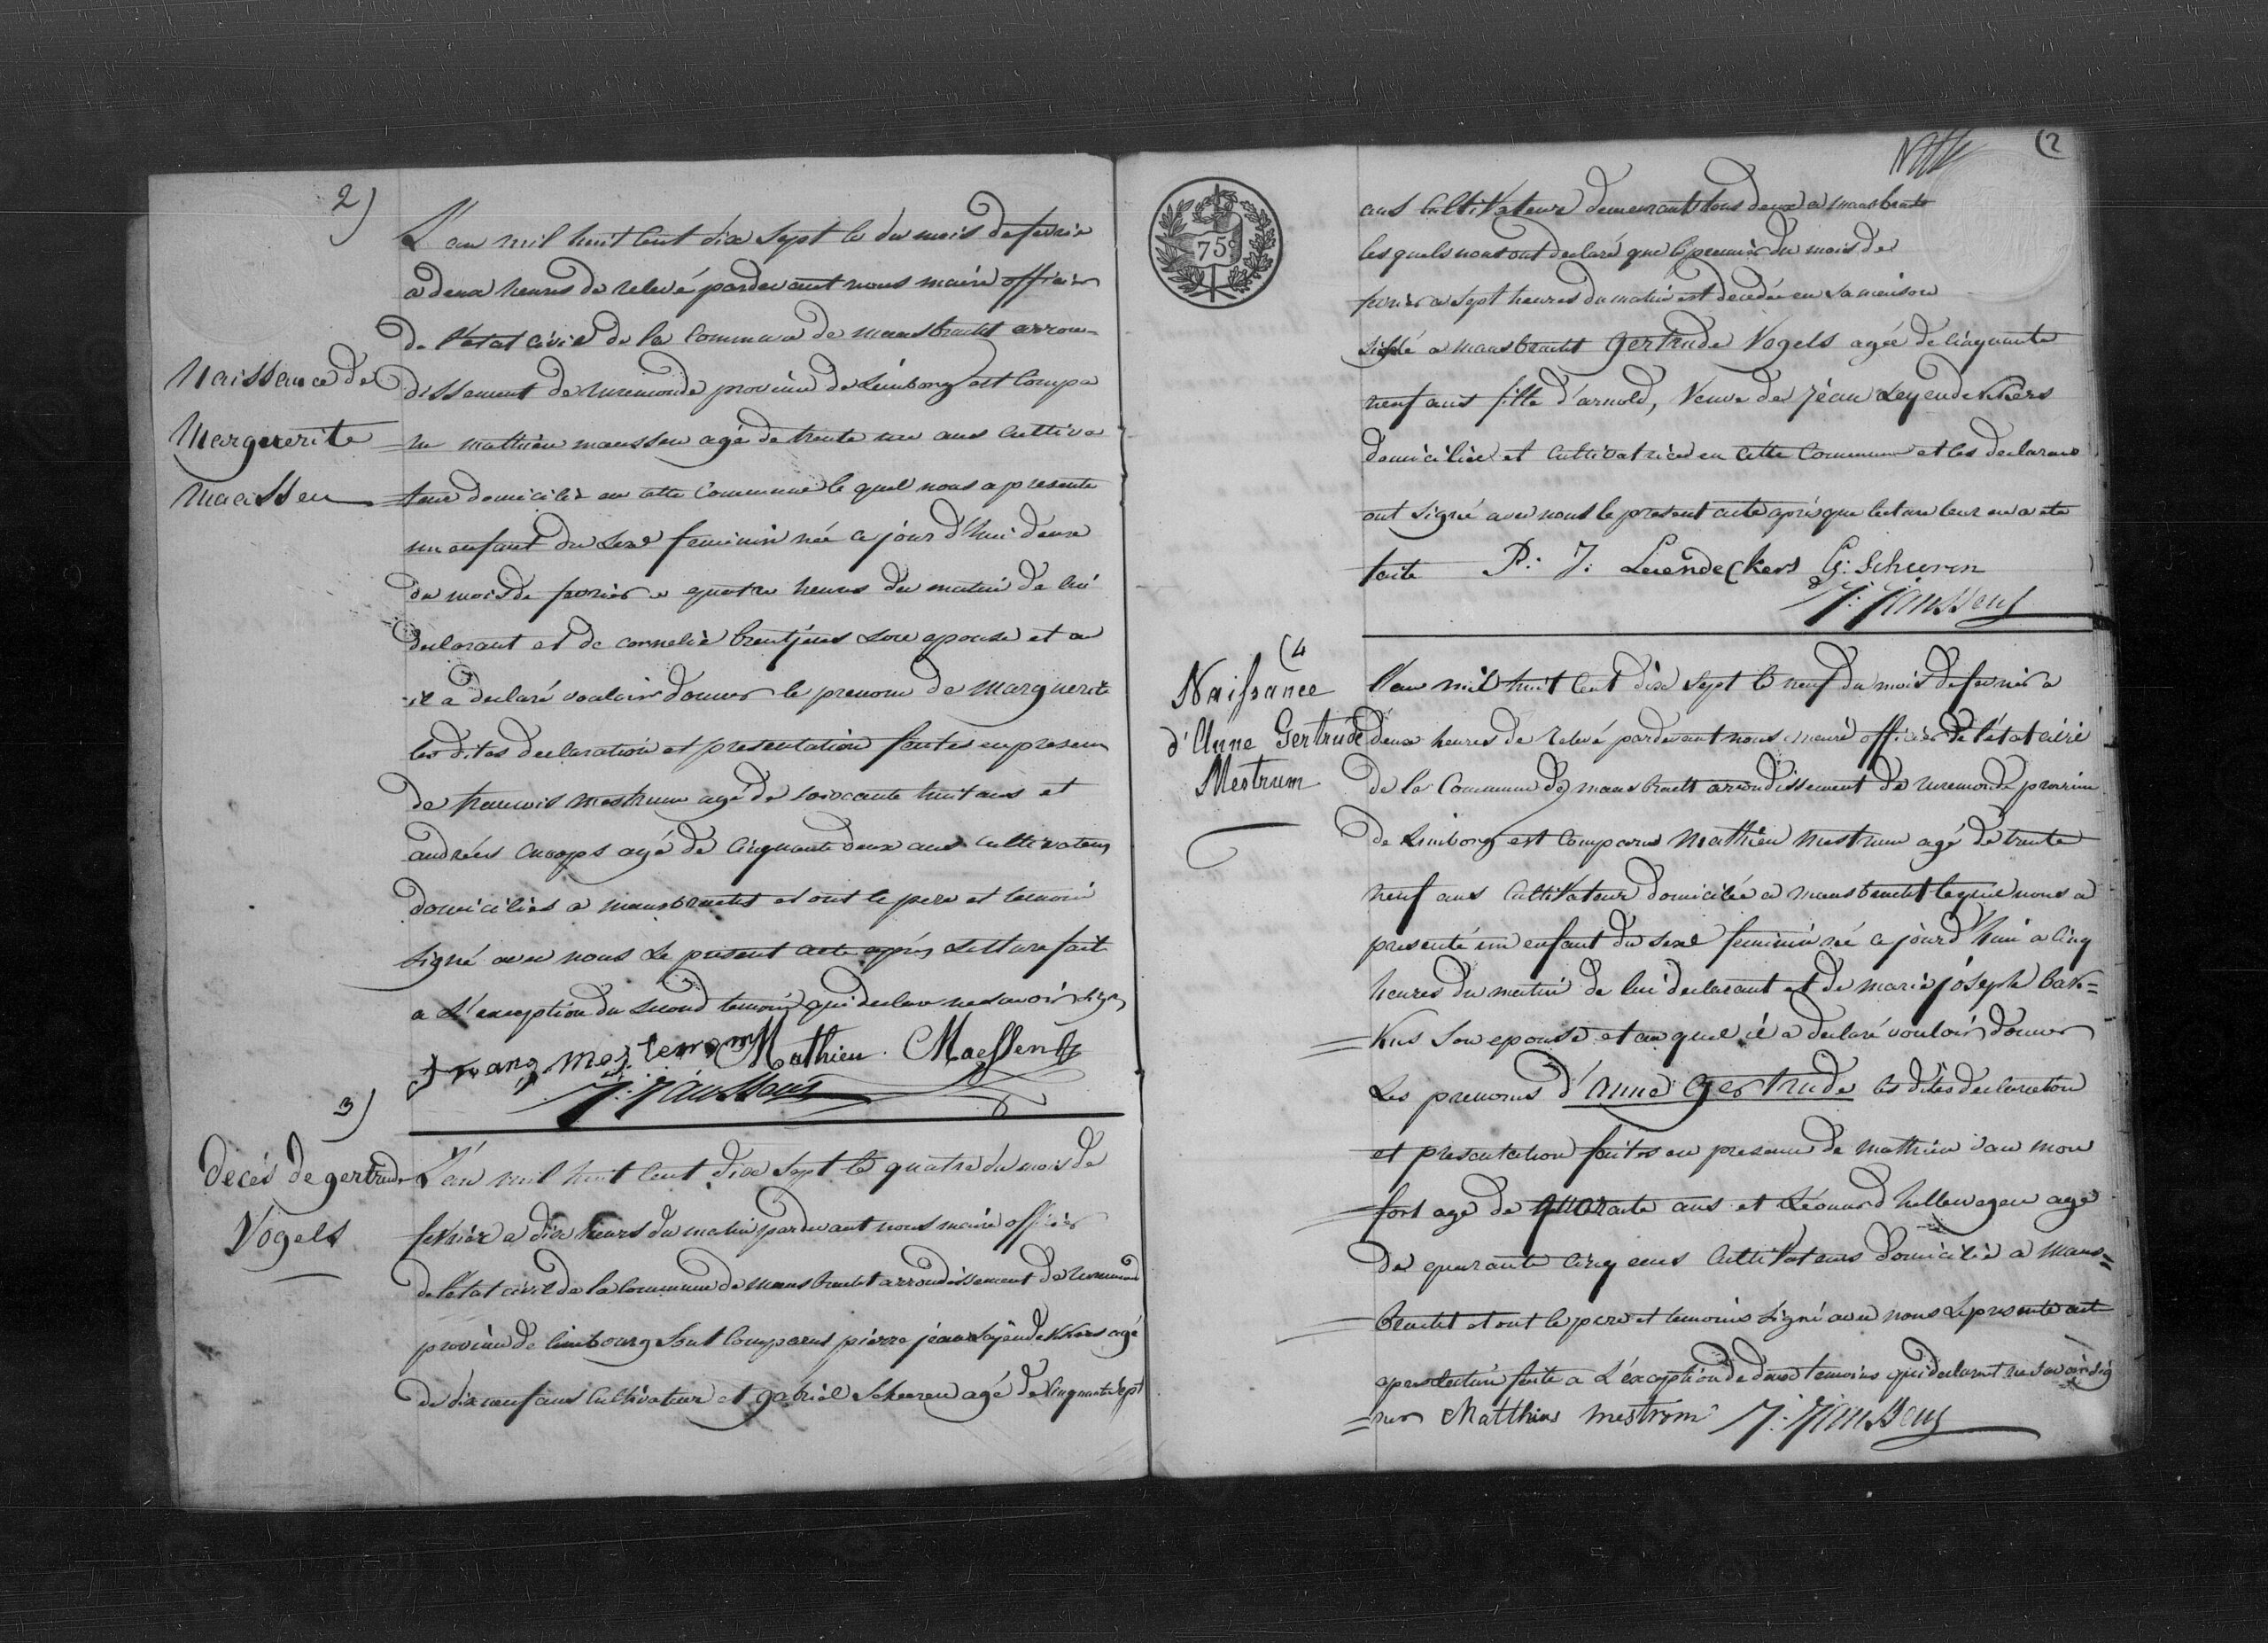 2)
L'an mil huit cent dix sept le du mois de fevrie
a deux heures de relevé pardevant nous maire officier
de l'etat civil de la commune de maasbracht arron-
Naissance de
Marguerite
Maessen
dissement de ruremonde province de Limborg est compa
ru mathieu maessen agé de trente un ans cultiva
teur domicilié en cette commune le quel nous a presente
un enfant du sexe feminin née ce jour d'hui deux
du mois de fevrier a quatre heures du matin de lui
declarant et de cornelie sone epouse et au
il a declaré vouloir donner le prenom de marguerite
les dites declaration et presentation faites en presence
de francois mestrum agé de soixante huit ans et
andréas agé de cinquante deux ans cultivateurs
domiciliés a maasbracht et ont le pere et temoin
signé avec nous le present acte après lecture faite
a l'exception du second temoin qui declare ne savoir signe
Franz mestrom Mathieu Maessen
J: Janssens
3)
Decés de gertrude
Vogels
L'an mil huit cent dix sept le quatre du mois de
fevriér a dix heurs du matin pardevant nous maire officier
de l'etat civil de la commune de maasbracht arrondissement de ruremonde
province de limbourg sont comparus pierre jean Leyendekkers agé
de dix neuf ans cultivateur et gabriel Scheuren agé de cinquante sept
(2
75c
ans cultivateur demeurant tous deux a maasbracht
les quels nous ont declaré que le premier du mois de
fevrier a sept heures du matin est decedée en sa maison
a maasbracht Gertrude Vogels agée de cinquante
neuf ans fille d'arnold, Veuve de jéan Leyendekkers
domiciliée et cultivatrice en cette commune et les declarans
ont signé avec nous le present acte après que lecture leur en a ete
faite P: J: Leiendeckers G: Scheuren
J: Janssens
(4
Naissance
d'Anne Gertrude
Mestrum
l'an mil huit cent dix sept le neuf du mois de fevrier a
deux heures de relevé pardevant nous maire officier de l'état civil
de la commune de maasbracht arrondissement de ruremonde province
de Limborg est comparus Mathieu mestrum agé de trente
neuf ans cultivateur domicilée a maasbracht lequel nous a
presenté un enfant du sexe feminin née ce jour d'hui a cinq
heures du matin de lui declarant et de marie joseph bak=
=kus son epouse et au quel il a declaré vouloir donner
Les prenoms d'anne Gertrude les dites declaration
et presentation faites en presence de mathieu van mon
=fort agé de quarante ans et Léonard hellewegen agé
de quarante cinq ans cultivateurs domicilié a maas=
=bracht et ont le pere et temoins signé avec nous le presente acte
apres lecture faite a l'exception de deux temoins qui declarent ne savoir sig
=ner Matthias mestrom J: Janssens